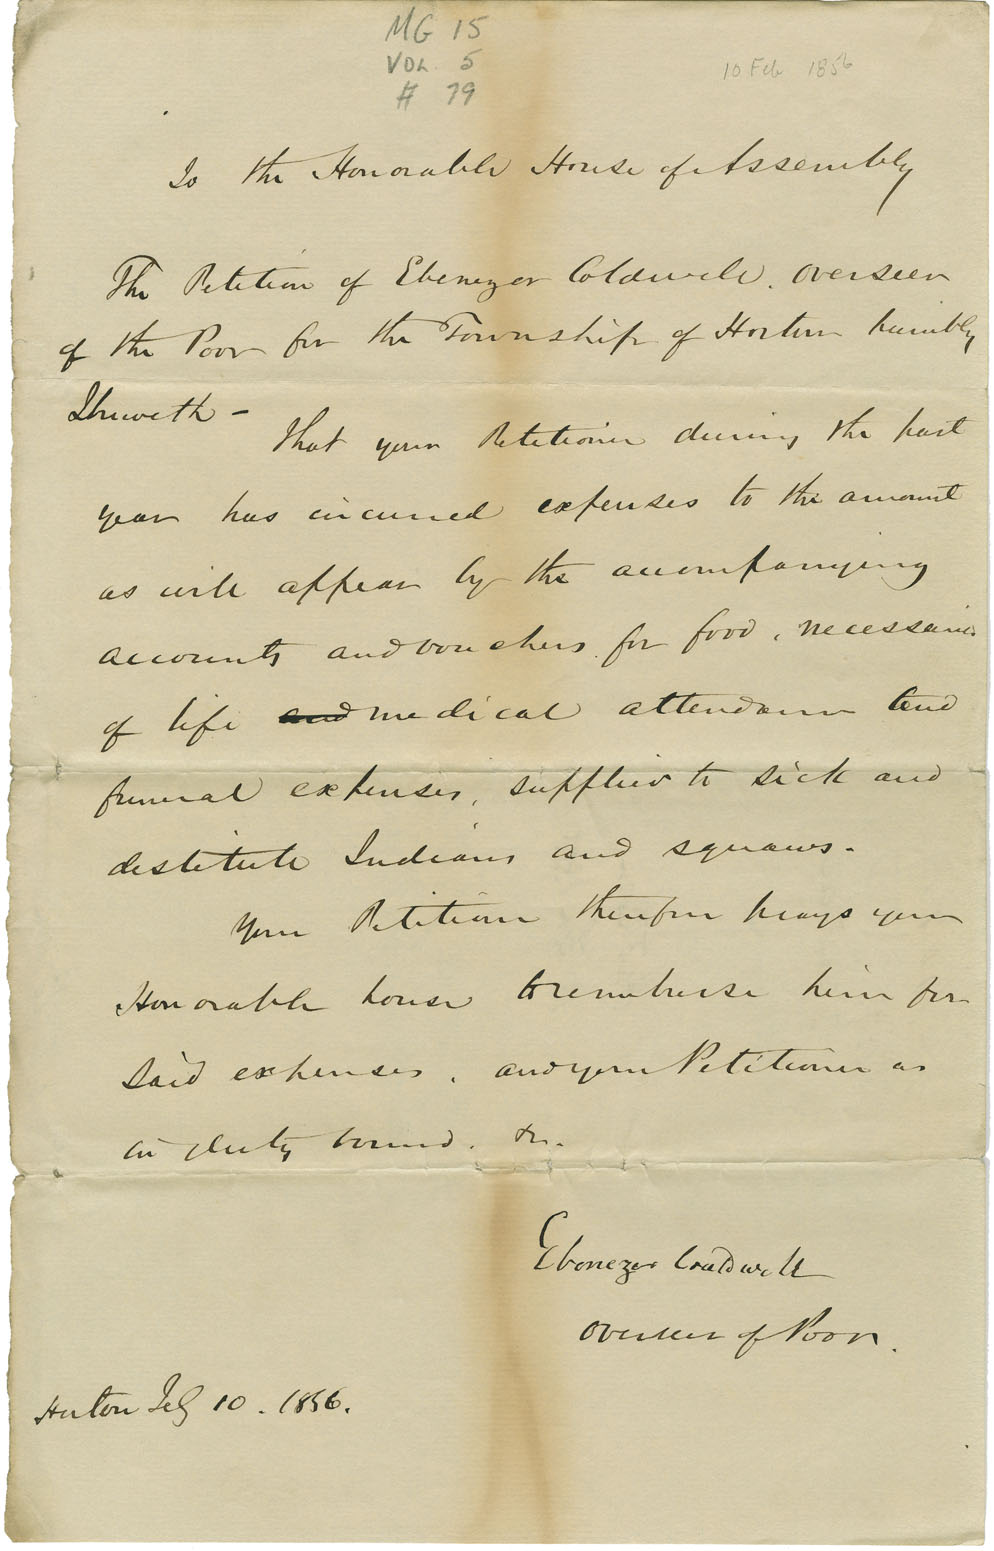 MG 15
VOL. 5
# 79
10 Feb 1856
To the Honorable House of Assembly
The Petition of Ebenezer Coldwell. overseer
of the Poor for the Township of Horton humbly
Sheweth -
That your Petitioner during the past
year has incurred expenses to the amount
as will appear by the accompanying
accounts and vouchers for food, necessaries
of life and medical attendance and
funeral expenses, supplied to sick and
destitute Indians and squaws.
Your Petitioner therefore prays your
Honorable house to remburse him for
said expenses, and your Petitioner as
in duty bound. &c.
Ebenezer Couldwell
Overseer of Poor.
Horton Feb 10. 1856.